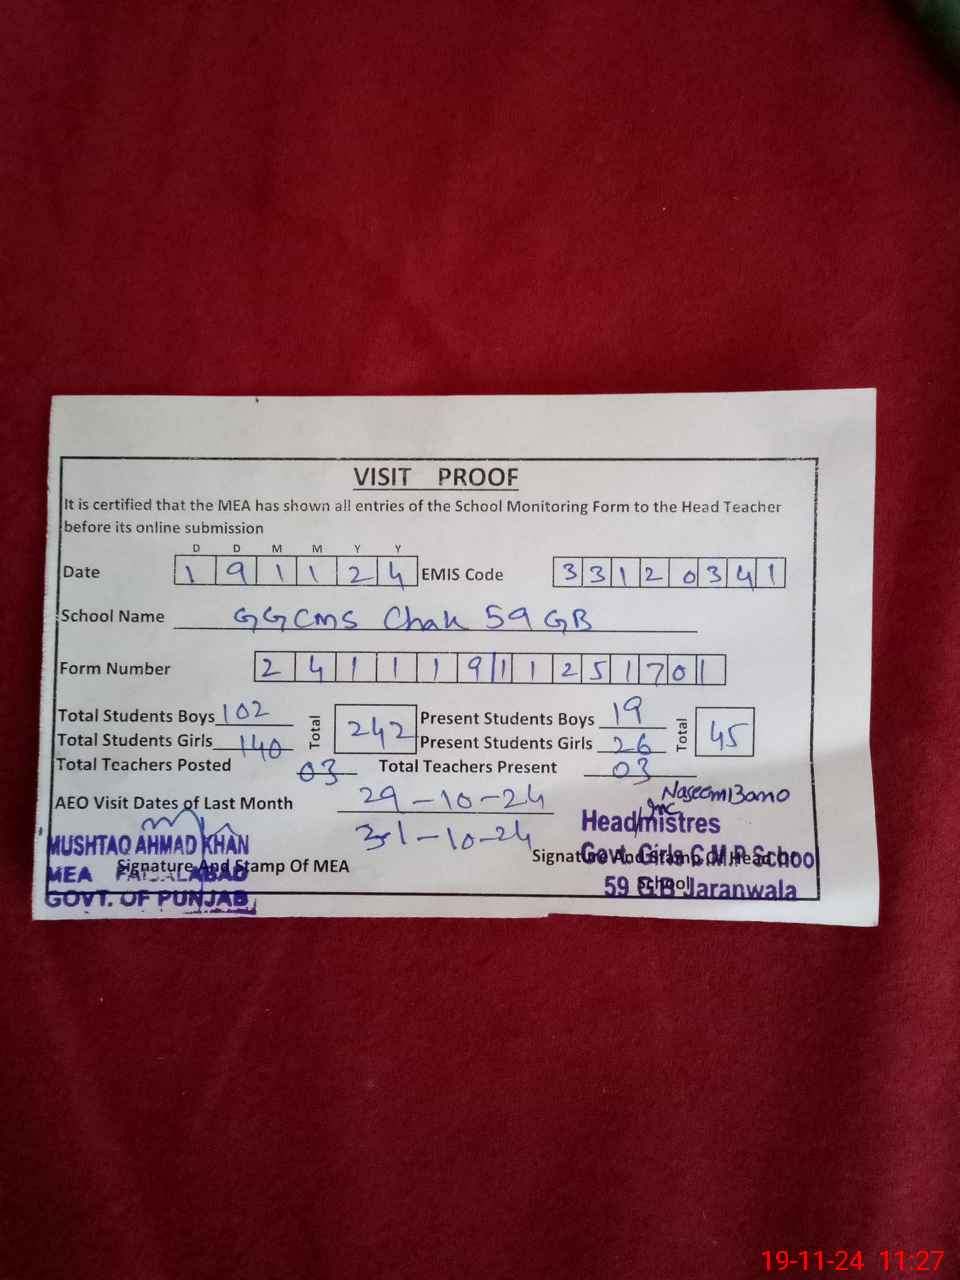 VISIT PROOF
It is certified that the MEA has shown all entries of the School Monitoring Form to the Head Teacher
before its online submission
D D M M Y Y
Date 1 9 1 1 2 4 EMIS Code 3 3 1 2 0 3 4 1
School Name GGCMS Chak 59 GB
Form Number 2 4 1 1 1 9 1 1 2 5 1 7 0 1
Total Students Boys 102 Total 242 Present Students Boys 19 Total 45
Total Students Girls 140 Present Students Girls 26
Total Teachers Posted 03 Total Teachers Present 03
AEO Visit Dates of Last Month 29-10-24
31-10-24
Naseem Bano
Inc
Head/mistres
MUSHTAQ AHMAD KHAN
Signature And Stamp Of MEA
MEA FAISALABAD
GOVT. OF PUNJAB
Signature And Stamp Of Head
School
Govt. Girls C.M.P. School
59 GB Jaranwala
19-11-24 11:27